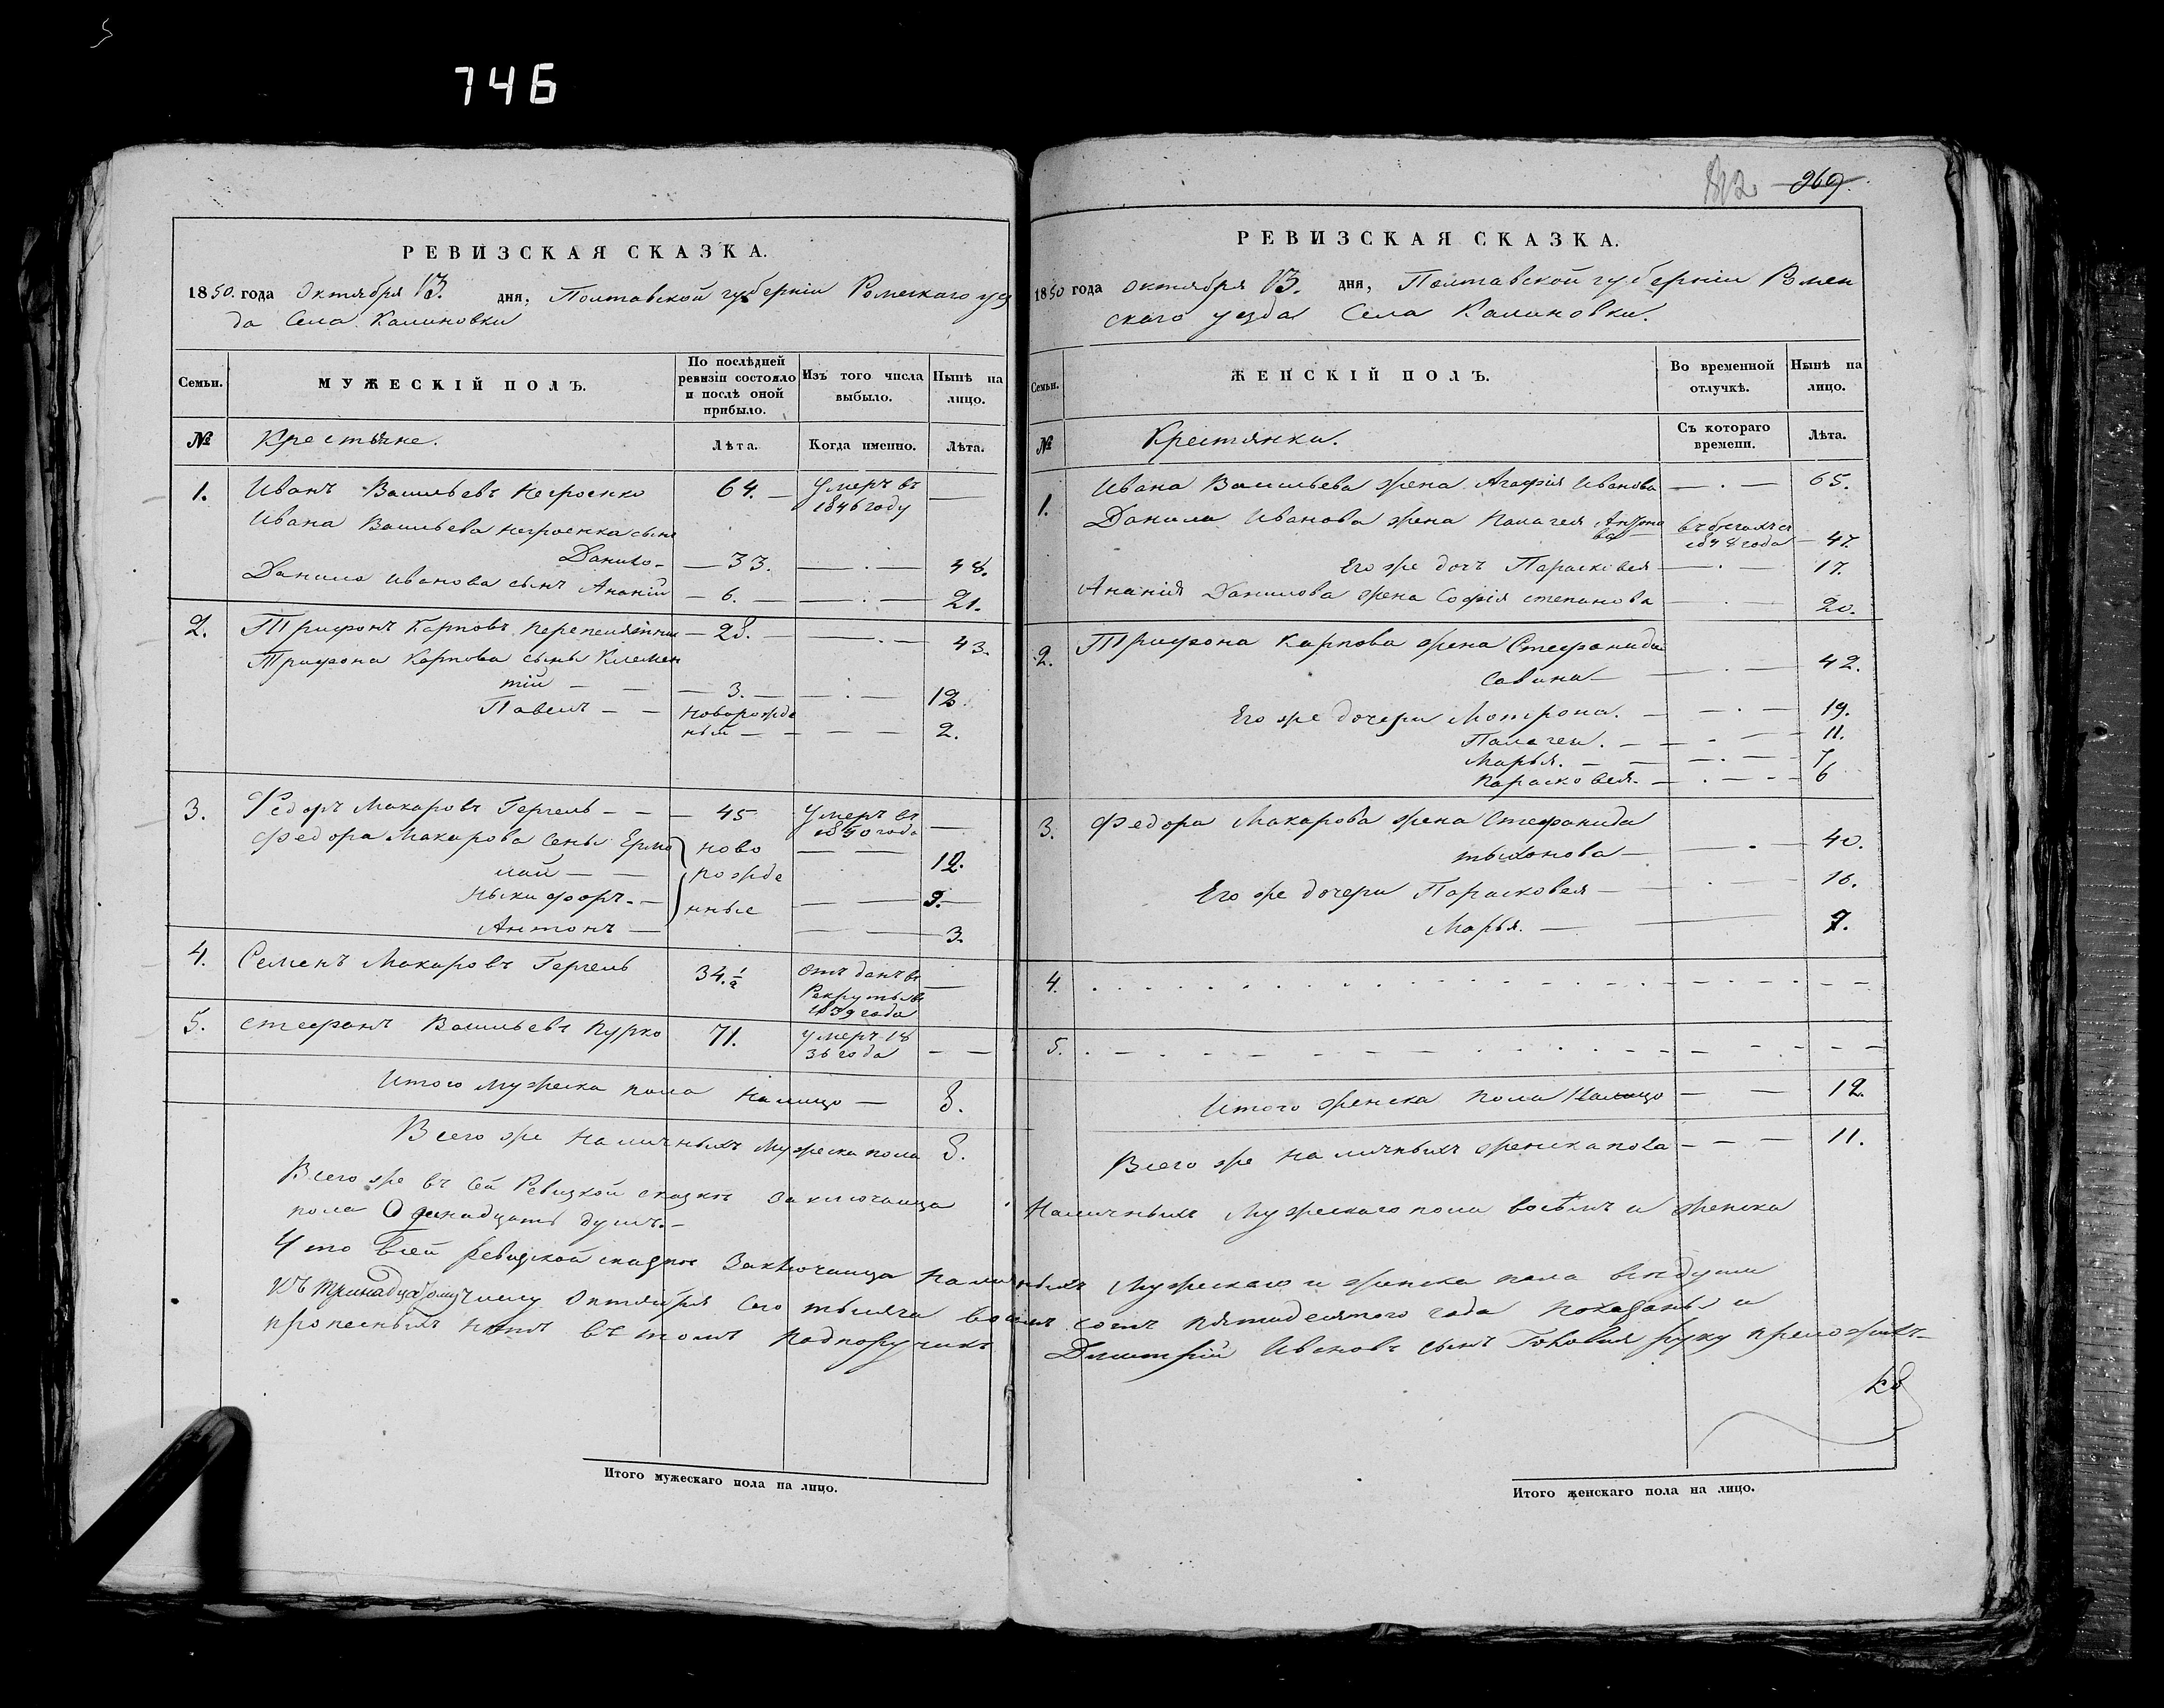 746
РЕВИЗСКАЯ СКАЗКА.
1850. года Октября 13. дня, Полтавской губерніи Роменскаго уез
да Села Калиновки
Семьи. МУЖЕСКІЙ ПОЛЪ. По послѣдней ревизіи состояло и послѣ оной прибыло. Изъ того числа выбыло. Нынѣ на лицо.
№ Крестьяне. Лѣта. Когда именно. Лѣта.
1. Иванъ Васильевъ Негроенко 64. — умеръ въ 1846 году —
Ивана Васильева Негроенка сынъ
Данило — 33. — · — 48.
Данила Иванова сынъ Ананій — 6. — · — 21.
2. Трифонъ Карповъ — 28. — · — 43.
Трифона Карпова сыны Клемен
тій — — — 3. — — · — 18.
Павелъ — — Новорожде
ный — — — — 2.
3. Федоръ Макаровъ Гергель — — — 45 умеръ въ 1850 года —
Федора Макарова сены Ермо
лай — — ново — — 12.
Ныкифоръ. — рожде
нные — — 9.
Антонъ — — — 3.
4. Семенъ Макаровъ Гергель 34.½ отданъ въ Рекруты въ 1839 года —
5. Стефанъ Васильевъ Курко 71. умеръ 18 36 года — —
Итого мужеска пола налицо — 8.
Всего же наличныхъ мужеска пола 8.
Итого мужескаго пола на лицо.
969.
РЕВИЗСКАЯ СКАЗКА.
1850 года Октября 13. дня, Полтавской губерніи Ромен
скаго уезда Села Калиновки.
Семьи. ЖЕНСКІЙ ПОЛЪ. Во временной отлучкѣ. Нынѣ на лицо.
№ Крестянки. Съ котораго времени. Лѣта.
1. Ивана Васильева жена Агафія Иванова — · — 65.
Данила Иванова жена Палагея Антоно
ва въ бегахъ съ 1848 года — 47.
Его же дочь Парасківея — · — 17.
Ананія Данилова жена Софія степанова — · — 20.
2. Трифона Карпова жена Стефанида
Савина — — · — 42.
Его же дочери Мотрона. — — · — 19.
Палагея. — — · — 11.
Марья. — — — · — 7
Парасковея. — · — · — 6
3. Федора Макарова жена Стефанида
тыхонова — — · — 40.
Его же дочери Парасковея — — · — 16.
Марья. — — 7.
4.
5.
Итого женска пола Налицо — — 12.
Всего же наличныхъ женска пола — — — 11.
Всего же въ сей Ревизкой сказкѣ заключаица Наличныхъ мужескаго пола восѣмъ и женска
пола Одинадцать душъ. —
Что всей Ревизкой сказкѣ Заключаица наличныхъ мужескаго и женска пола все души
къ тринадцатому числу Октября сего тысяча восемъ сотъ пятидесятого года показаны и
прописныхъ нетъ въ томъ подпоручикъ Дмитрій Ивановъ сынъ руку приложилъ —
Итого женскаго пола на лицо.